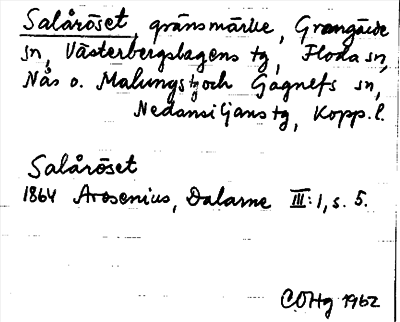 Salåröset, gränsmärke, Grangärde
sn, Västerbergslagens tg, Floda sn,
Nås o. Malungs tg och Gagnefs sn,
Nedansiljans tg, Kopp. l.
Salåröset
1864 Arosenius, Dalarne III:1, s. 5.
COHg 1962